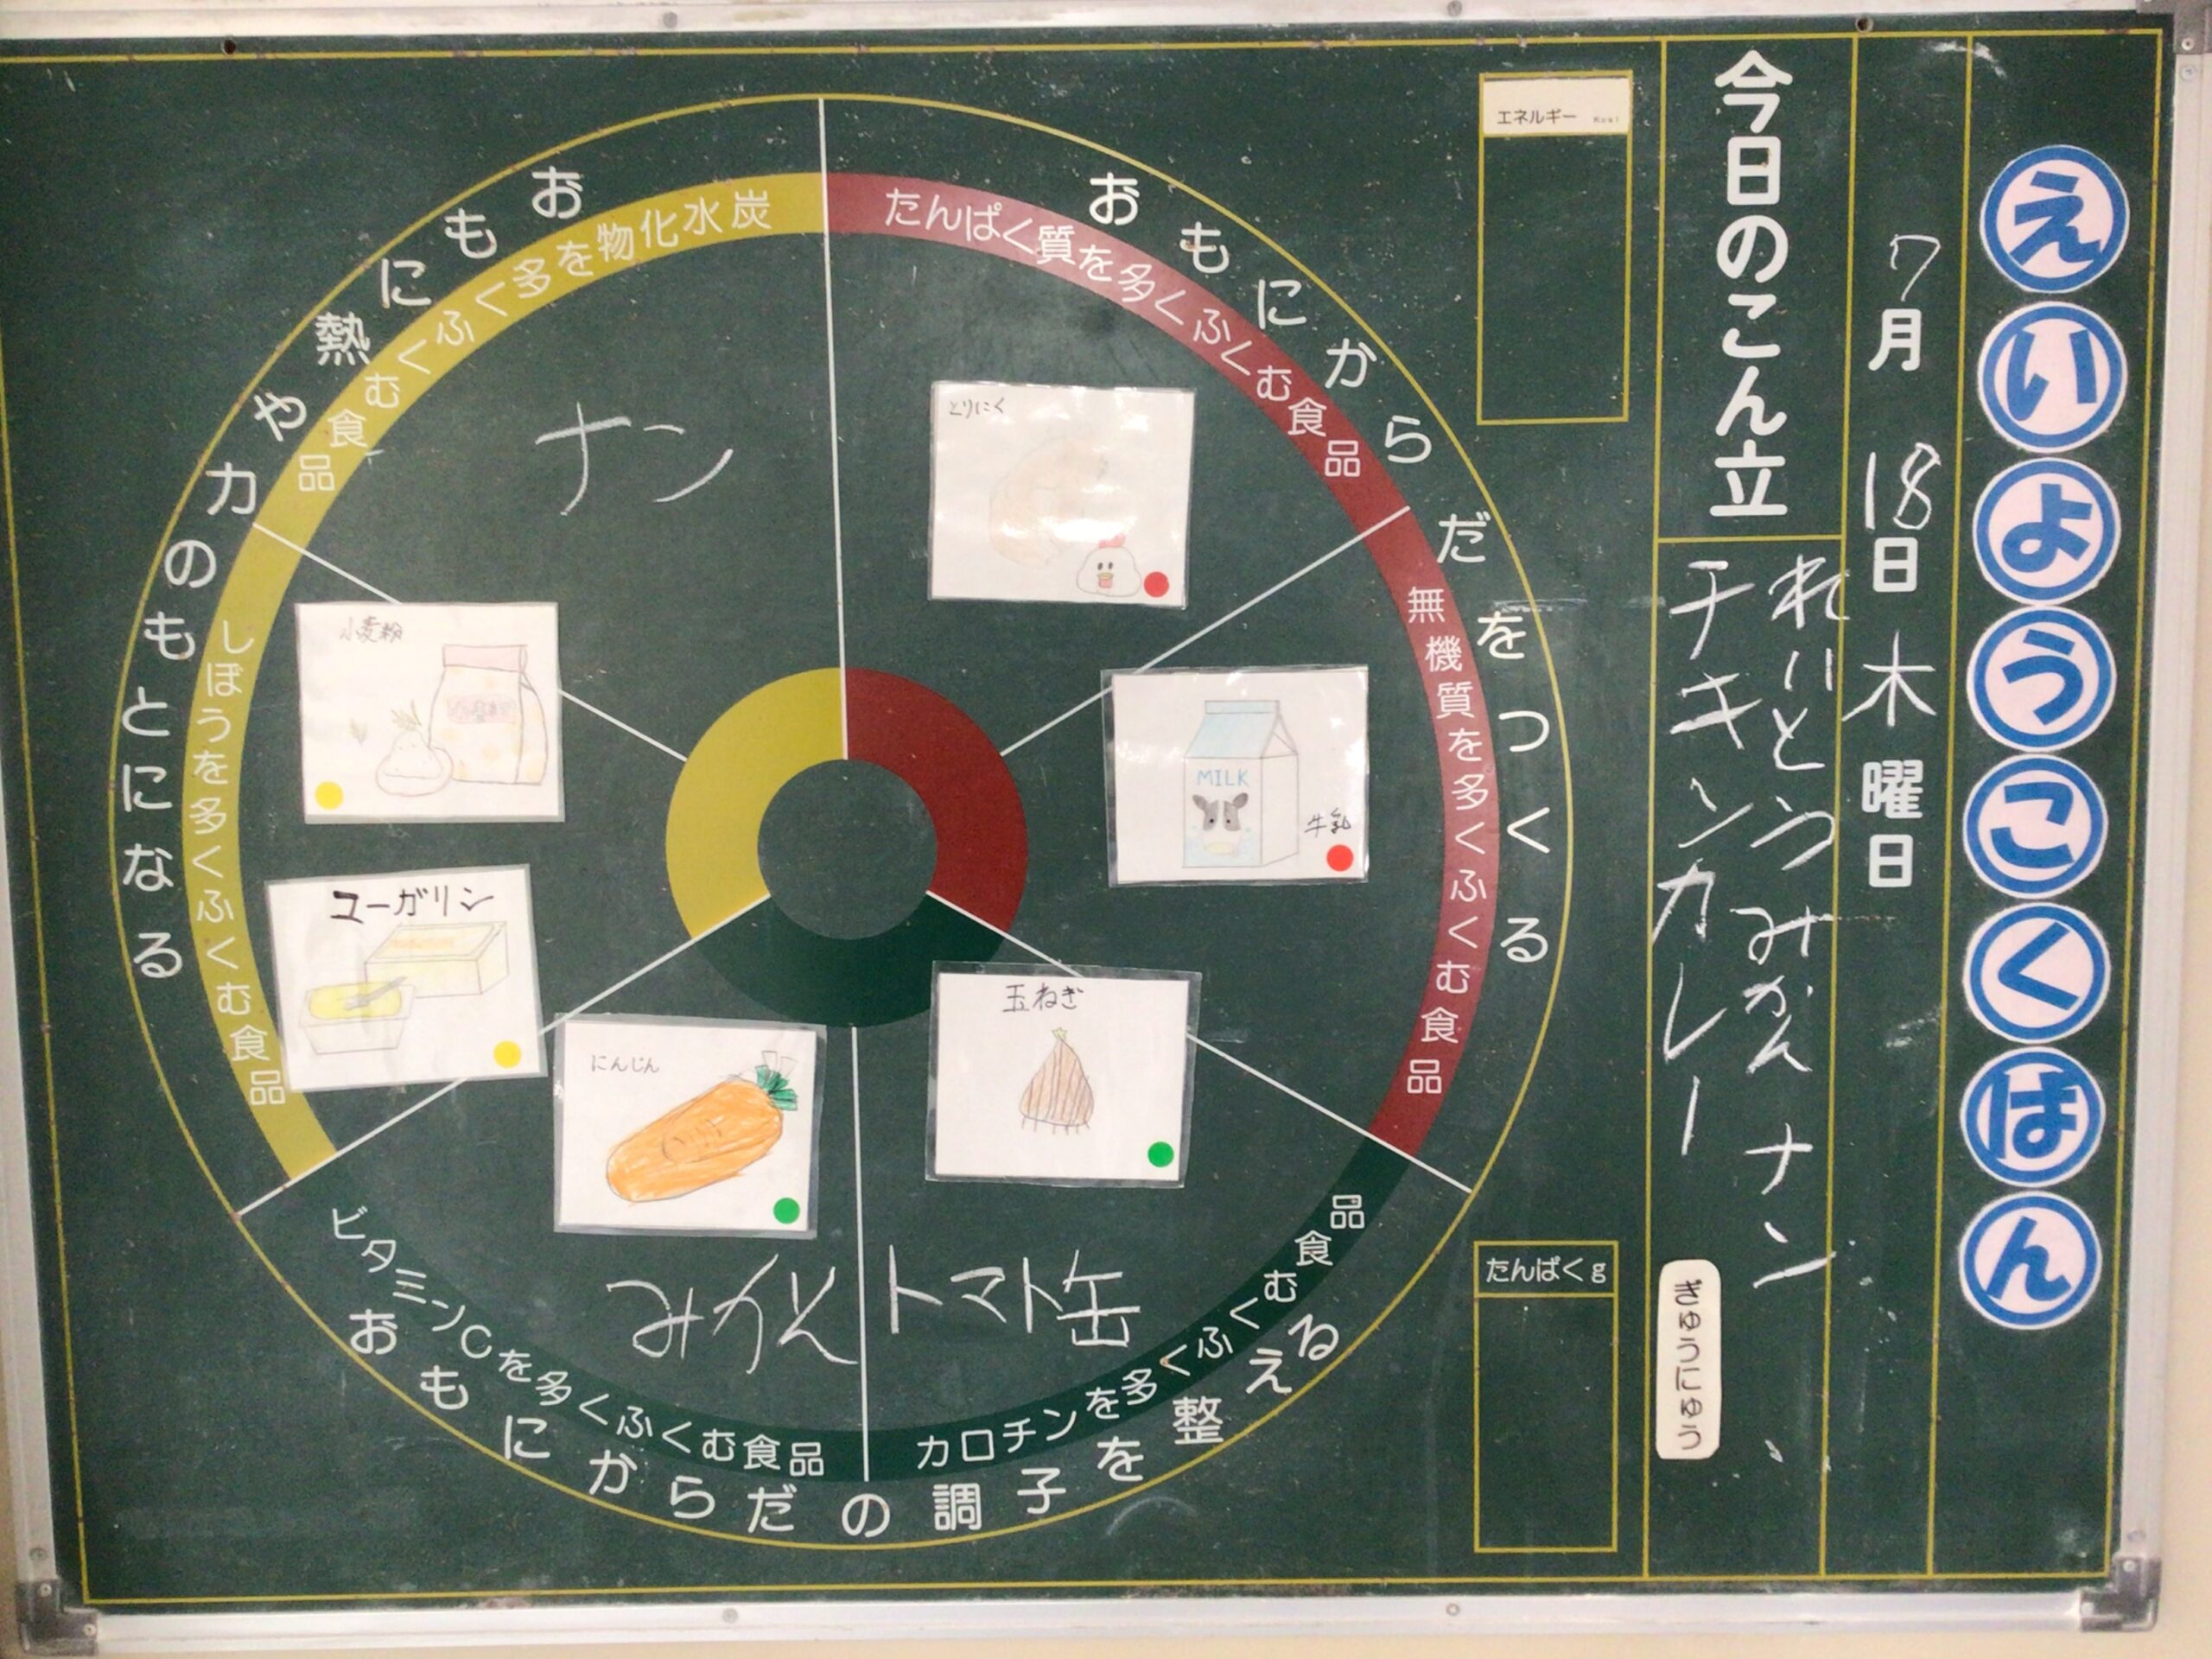 えいようこくばん
7月18日木曜日
今日のこん立
れいとうみかん ナン
チキンカレー
ぎゅうにゅう
エネルギー Kcal
たんぱく g
おもにからだをつくる
たんぱく質を多くふくむ食品
とりにく
無機質を多くふくむ食品
MILK
牛乳
おもにからだの調子を整える
カロチンを多くふくむ食品
玉ねぎ
トマト缶
ビタミンCを多くふくむ食品
にんじん
みかん
おもに熱や力のもとになる
炭水化物を多くふくむ食品
ナン
小麦粉
しぼうを多くふくむ食品
マーガリン